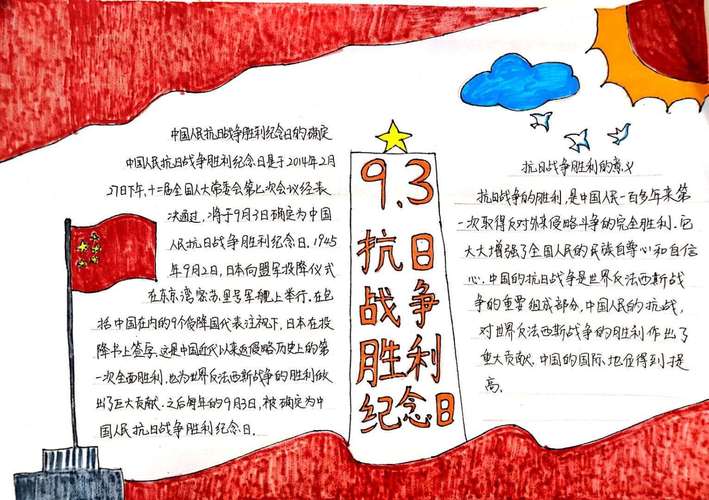 中国人民抗日战争胜利纪念日的确定
中国人民抗日战争胜利纪念日是于2014年2月
27日下午,十二届全国人大常委会第七次会议经表
决通过,将于9月3日确定为中国
人民抗日战争胜利纪念日.1945
年9月2日,日本向盟军投降仪式
在东京湾密苏里号军舰上举行.在包
括中国在内的9个受降国代表注视下,日本在投
降书上签字.这是中国近代以来反侵略历史上的第
一次全面胜利,也为世界反法西斯战争的胜利做
出了巨大贡献.之后每年的9月3日,被确定为中
国人民抗日战争胜利纪念日.
9.3
抗日
战争
胜利
纪念日
抗日战争胜利的意义
抗日战争的胜利,是中国人民一百多年来第
一次取得反对外来侵略斗争的完全胜利.它
大大增强了全国人民的民族自尊心和自信
心.中国的抗日战争是世界反法西斯战
争的重要组成部分,中国人民的抗战,
对世界反法西斯战争的胜利作出了
重大贡献.中国的国际地位得到提
高.